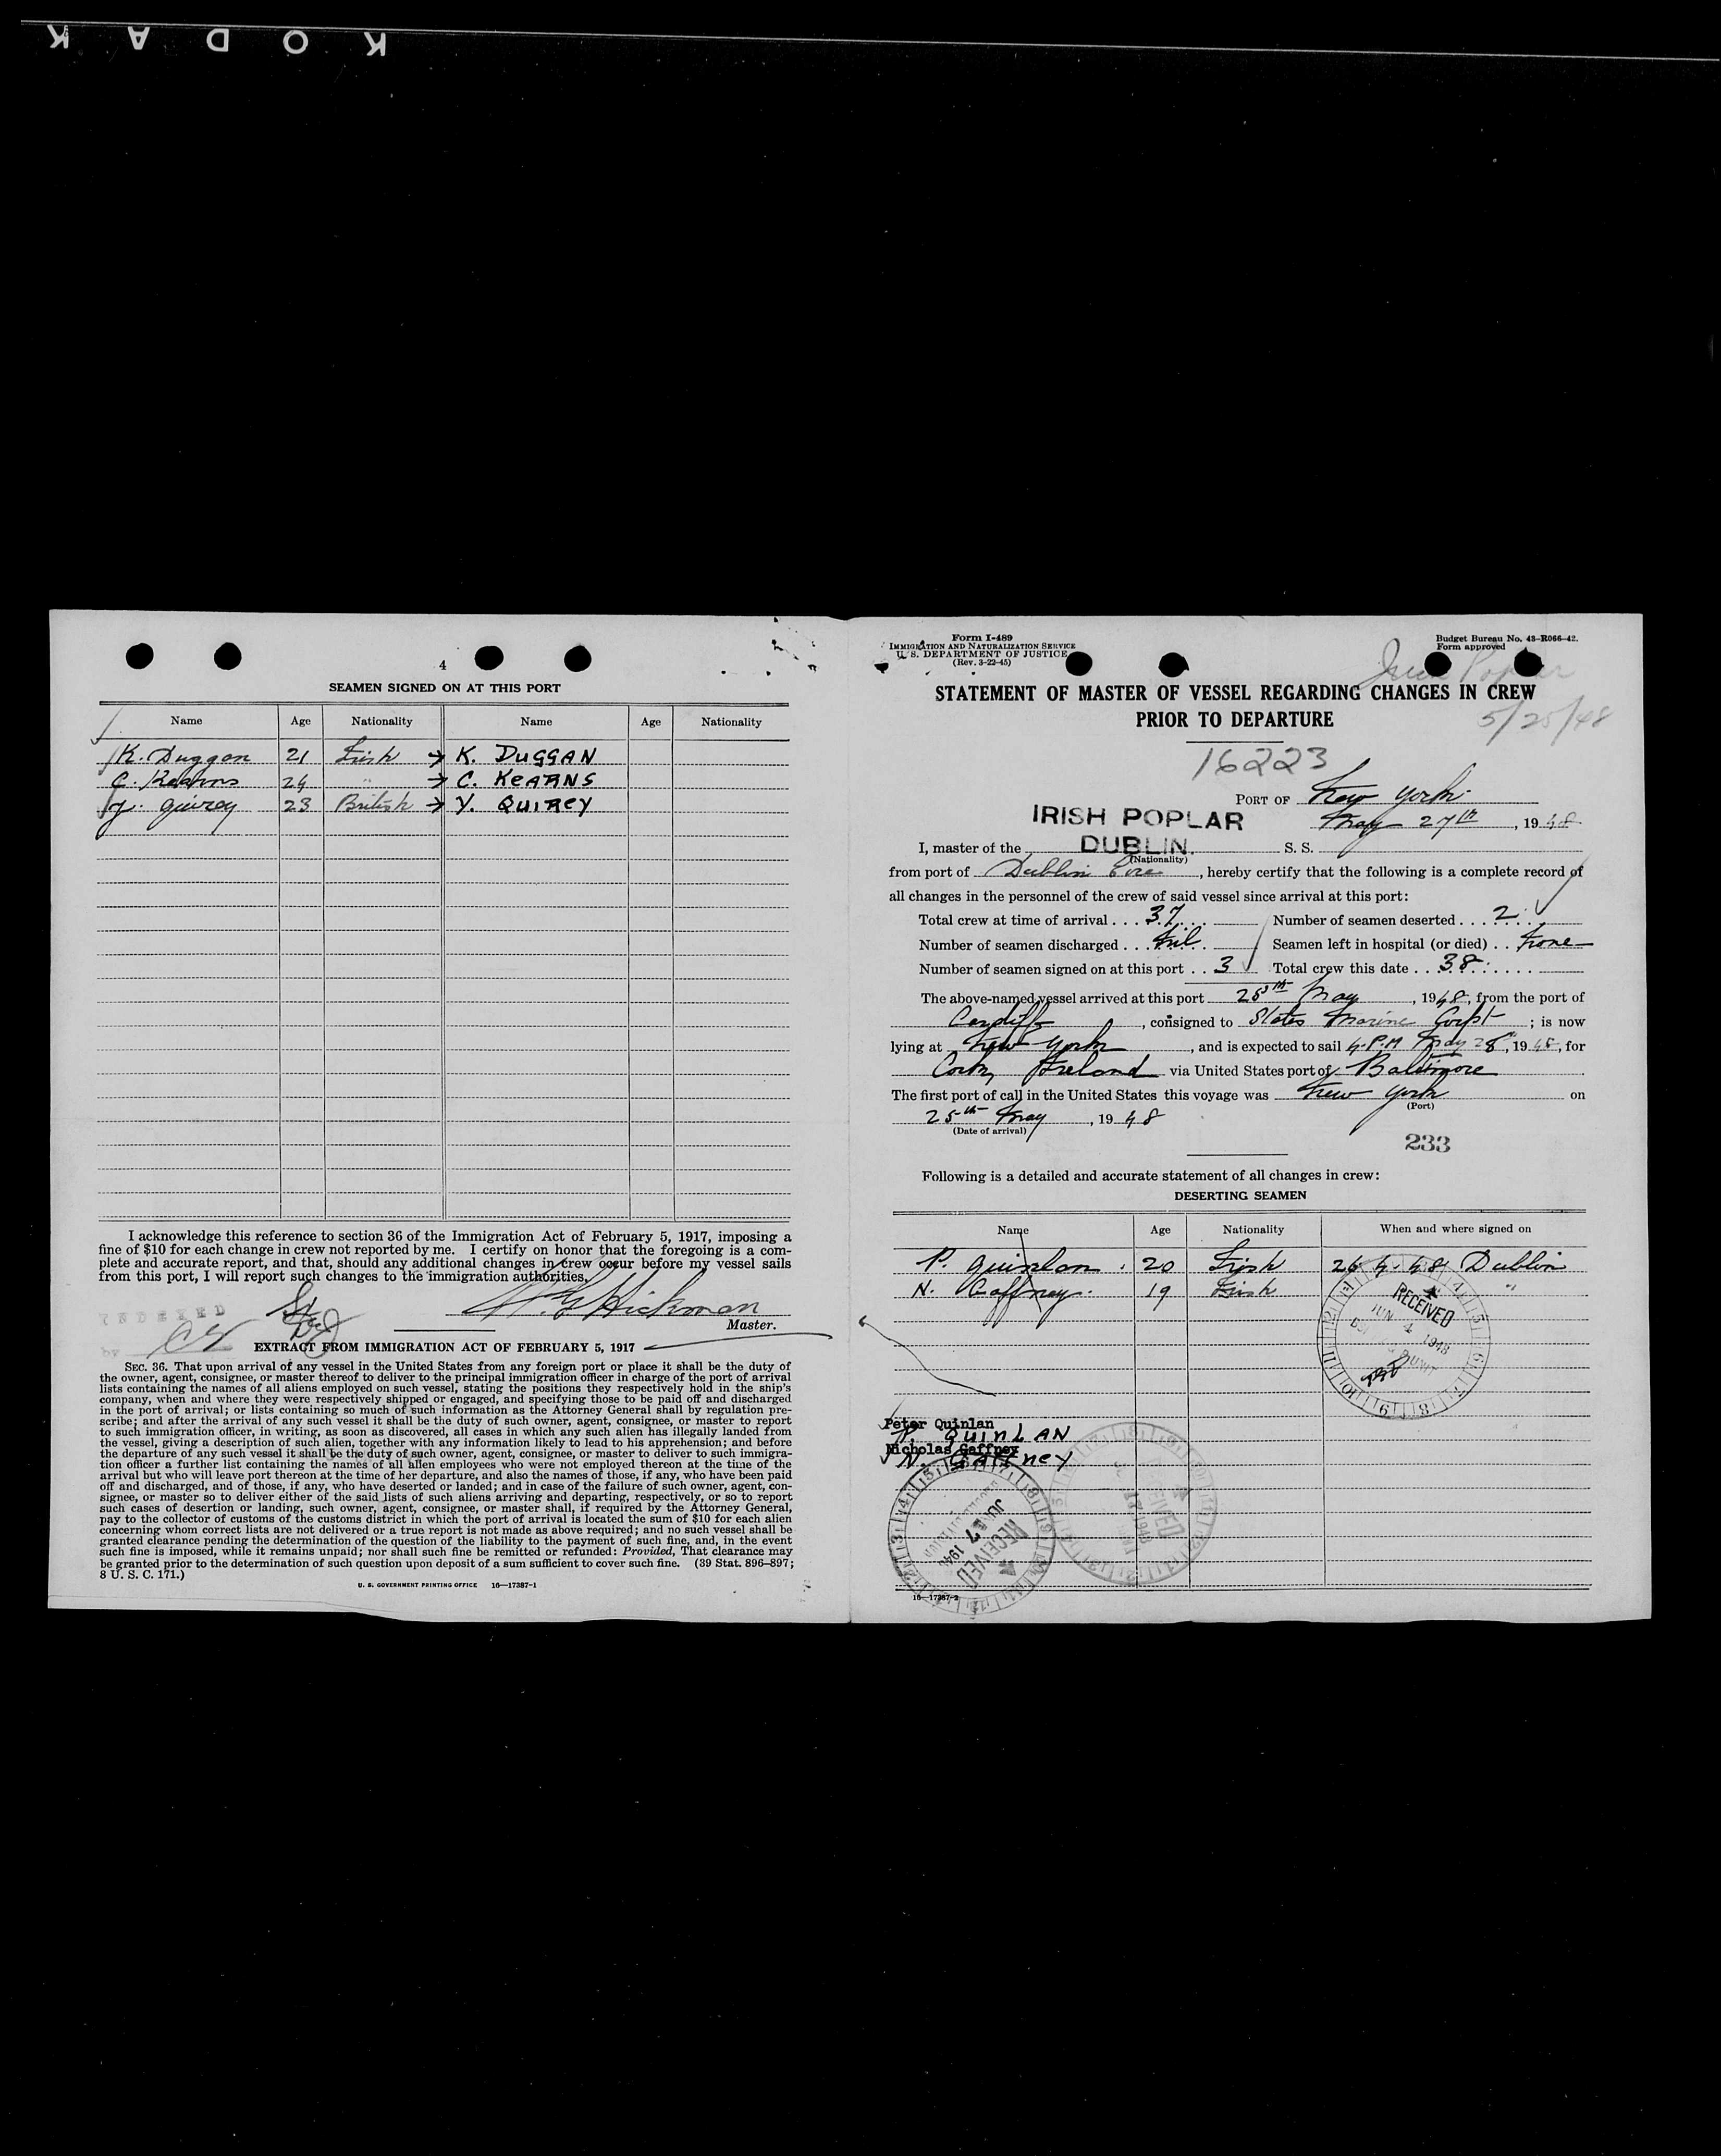 KODAK
4
SEAMEN SIGNED ON AT THIS PORT
Name Age Nationality Name Age Nationality
K. Duggan 21 Irish → K. DUGGAN
C. Kearns 24 " → C. KEARNS
Y. Quirey 23 British → Y. QUIREY
I acknowledge this reference to section 36 of the Immigration Act of February 5, 1917, imposing a
fine of $10 for each change in crew not reported by me. I certify on honor that the foregoing is a com-
plete and accurate report, and that, should any additional changes in crew occur before my vessel sails
from this port, I will report such changes to the immigration authorities.
INDEXED
Hickman
Master.
by
EXTRACT FROM IMMIGRATION ACT OF FEBRUARY 5, 1917
SEC. 36. That upon arrival of any vessel in the United States from any foreign port or place it shall be the duty of
the owner, agent, consignee, or master thereof to deliver to the principal immigration officer in charge of the port of arrival
lists containing the names of all aliens employed on such vessel, stating the positions they respectively hold in the ship's
company, when and where they were respectively shipped or engaged, and specifying those to be paid off and discharged
in the port of arrival; or lists containing so much of such information as the Attorney General shall by regulation pre-
scribe; and after the arrival of any such vessel it shall be the duty of such owner, agent, consignee, or master to report
to such immigration officer, in writing, as soon as discovered, all cases in which any such alien has illegally landed from
the vessel, giving a description of such alien, together with any information likely to lead to his apprehension; and before
the departure of any such vessel it shall be the duty of such owner, agent, consignee, or master to deliver to such immigra-
tion officer a further list containing the names of all alien employees who were not employed thereon at the time of the
arrival but who will leave port thereon at the time of her departure, and also the names of those, if any, who have been paid
off and discharged, and of those, if any, who have deserted or landed; and in case of the failure of such owner, agent, con-
signee, or master so to deliver either of the said lists of such aliens arriving and departing, respectively, or so to report
such cases of desertion or landing, such owner, agent, consignee, or master shall, if required by the Attorney General,
pay to the collector of customs of the customs district in which the port of arrival is located the sum of $10 for each alien
concerning whom correct lists are not delivered or a true report is not made as above required; and no such vessel shall be
granted clearance pending the determination of the question of the liability to the payment of such fine, and, in the event
such fine is imposed, while it remains unpaid; nor shall such fine be remitted or refunded: Provided, That clearance may
be granted prior to the determination of such question upon deposit of a sum sufficient to cover such fine. (39 Stat. 896–897;
8 U. S. C. 171.)
U. S. GOVERNMENT PRINTING OFFICE 16—17387-1
Form I-489
IMMIGRATION AND NATURALIZATION SERVICE
U. S. DEPARTMENT OF JUSTICE
(Rev. 3-22-45)
Budget Bureau No. 43-R066-42.
Form approved
Irish Poplar
STATEMENT OF MASTER OF VESSEL REGARDING CHANGES IN CREW
PRIOR TO DEPARTURE
5/25/48
16223
PORT OF New York
IRISH POPLAR May 27th, 1948
I, master of the DUBLIN. S. S.
(Nationality)
from port of Dublin Eire, hereby certify that the following is a complete record of
all changes in the personnel of the crew of said vessel since arrival at this port:
Total crew at time of arrival . . . 37 Number of seamen deserted . . . 2
Number of seamen discharged . . . Nil Seamen left in hospital (or died) . . None
Number of seamen signed on at this port . . 3 Total crew this date . . 38
The above-named vessel arrived at this port 25th May, 1948, from the port of
Cardiff, consigned to States Marine Corpt; is now
lying at New York, and is expected to sail 4 P.M May 28, 1948, for
Cork, Ireland via United States port of Baltimore
The first port of call in the United States this voyage was New York on
(Port)
25th May, 1948
(Date of arrival)
233
Following is a detailed and accurate statement of all changes in crew:
DESERTING SEAMEN
Name Age Nationality When and where signed on
P. Quinlan 20 Irish 26 4 48 Dublin
N. Gaffney 19 Irish "
RECEIVED
JUN 4 1948
Peter Quinlan
P. QUINLAN
Nicholas Gaffney
N. GAFFNEY
RECEIVED
JUN 7 1948
RECEIVED
16—17387-2